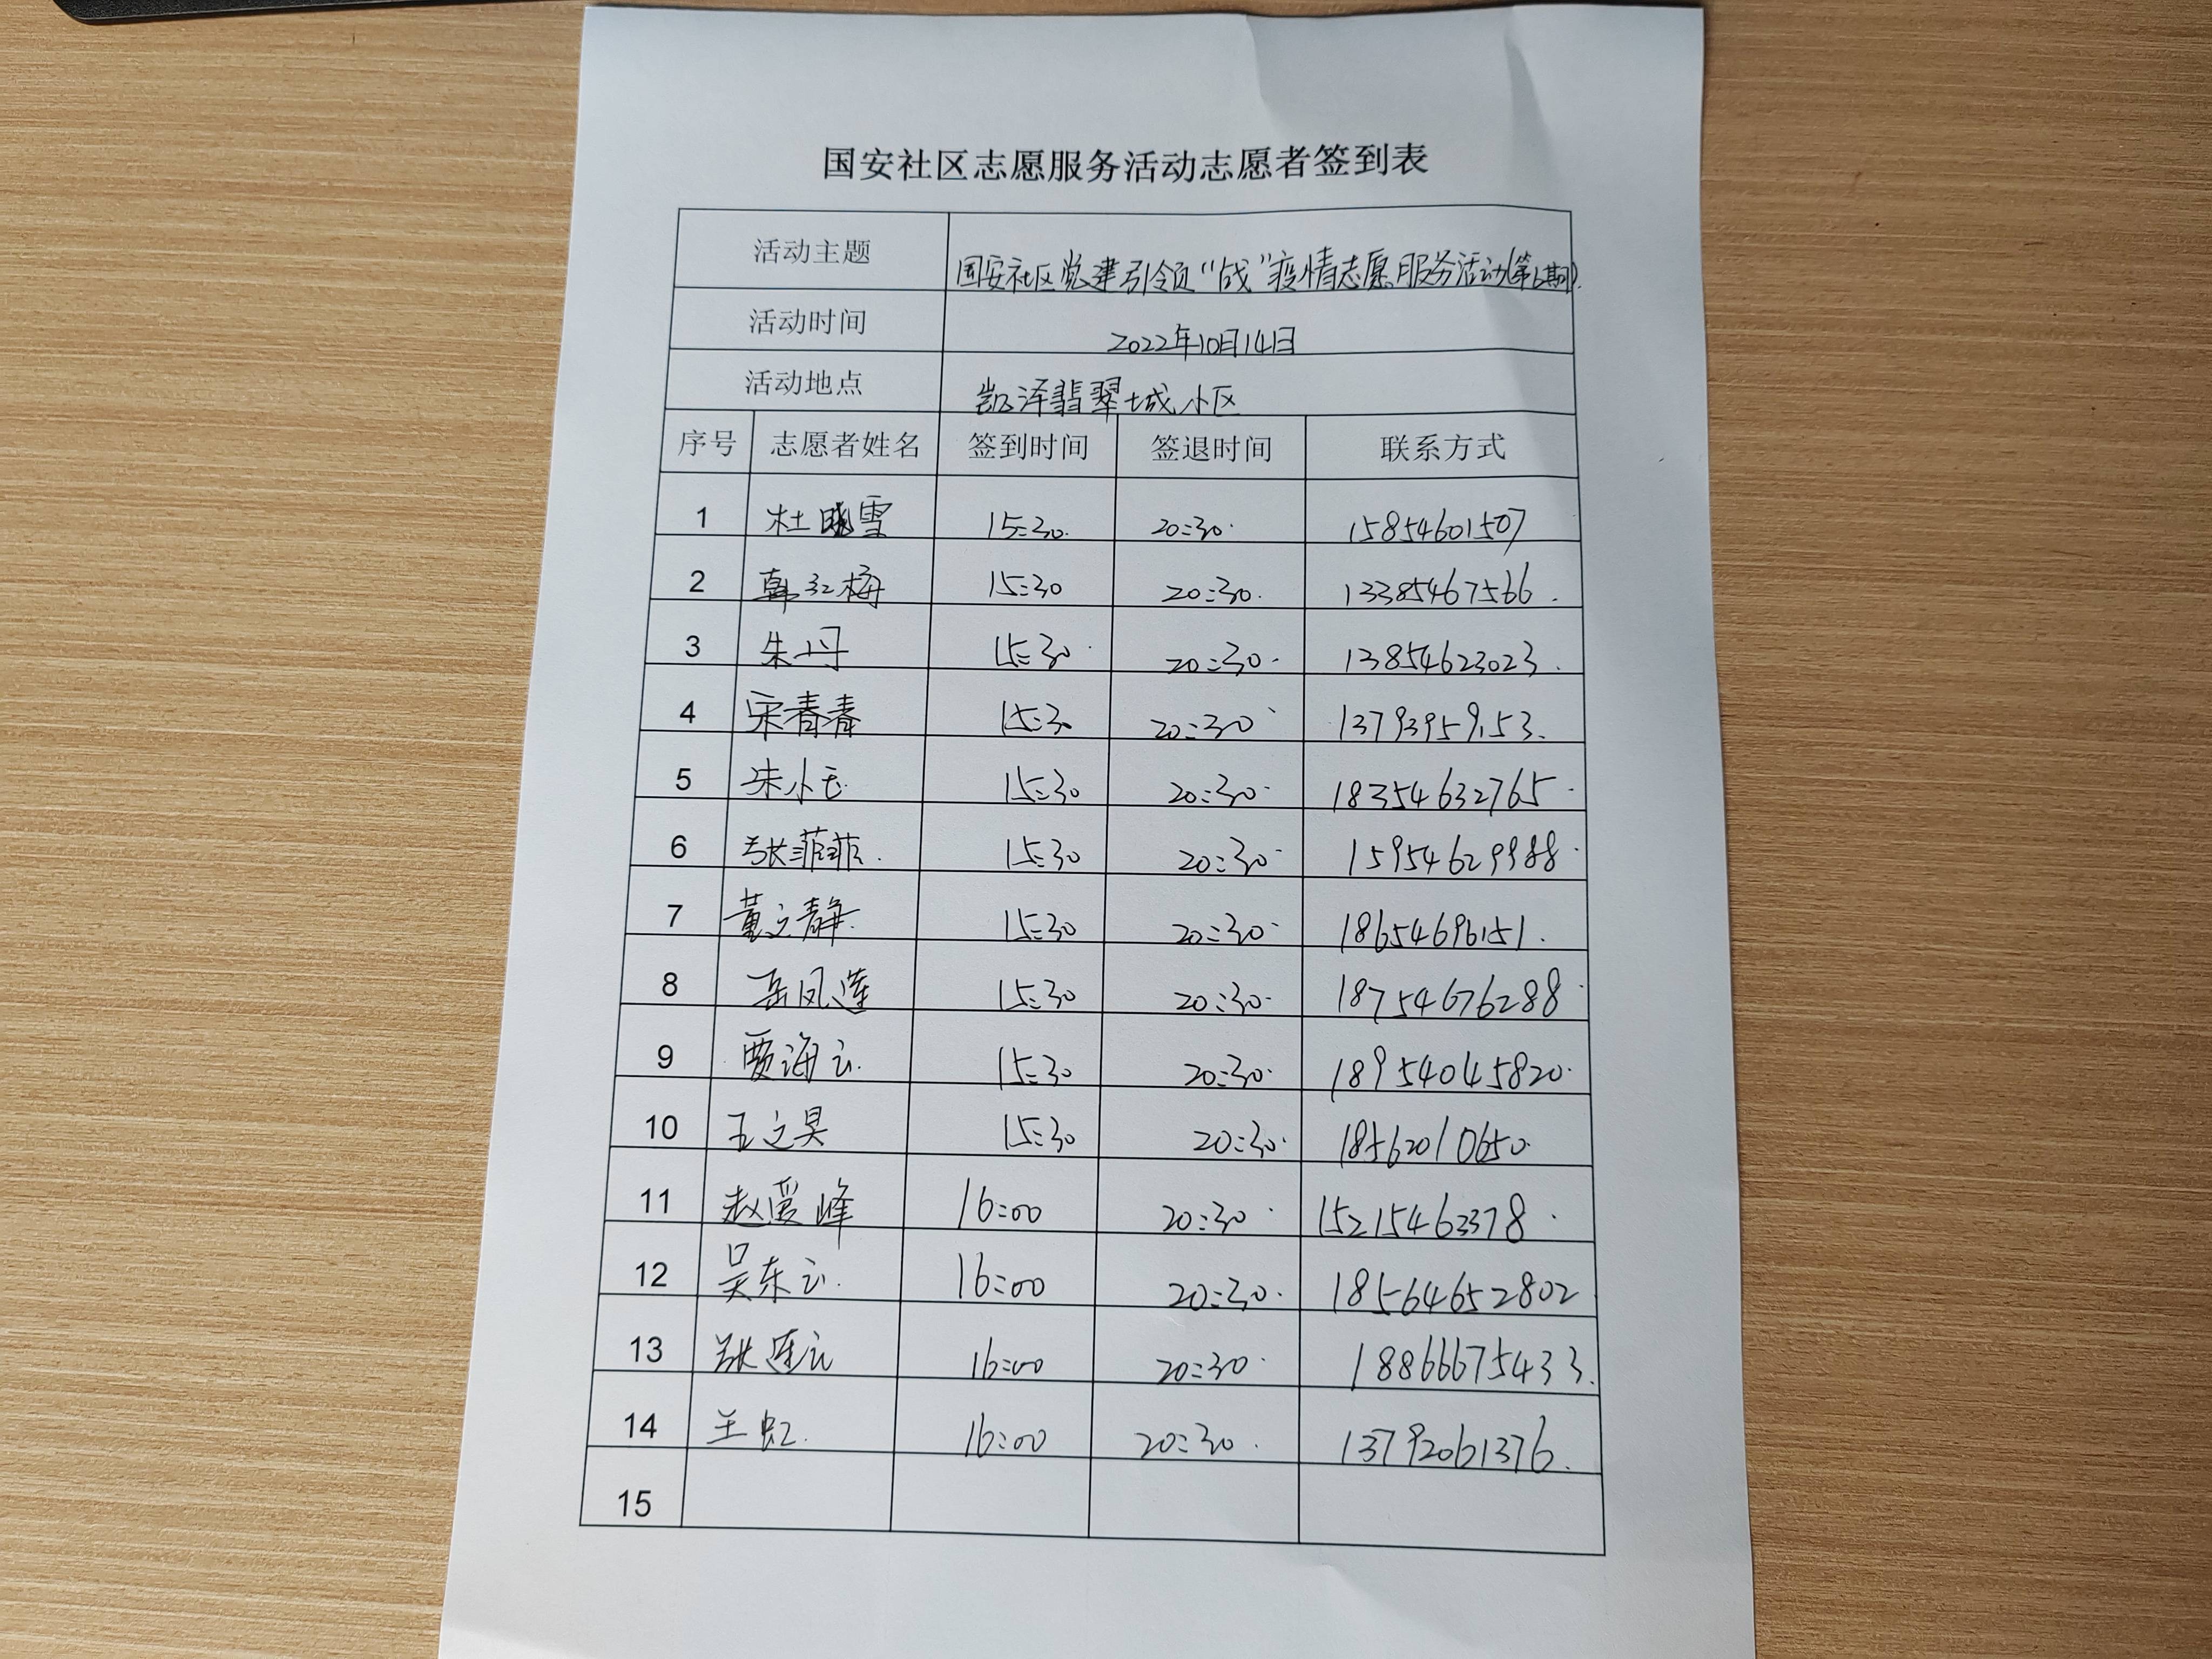 国安社区志愿服务活动志愿者签到表
活动主题 国安社区党建引领“战”疫情志愿服务活动(第6期).
活动时间 2022年10月14日
活动地点 凯泽翡翠城小区
序号 志愿者姓名 签到时间 签退时间 联系方式
1 杜晓雪 15:30 20:30 15854601507
2 韩红梅 15:30 20:30 13385467566
3 朱丹 15:30 20:30 13854623023
4 宋春春 15:30 20:30 13793959153
5 朱小玉 15:30 20:30 18354632765
6 张菲菲 15:30 20:30 15954629988
7 董文静 15:30 20:30 18654696151
8 岳凤莲 15:30 20:30 18754676288
9 贾海云 15:30 20:30 18954045820
10 王文昊 15:30 20:30 18562010650
11 赵爱峰 16:00 20:30 15215463378
12 吴东云 16:00 20:30 18564652802
13 张莲云 16:00 20:30 18866675433
14 王虹 16:00 20:30 13792061376
15